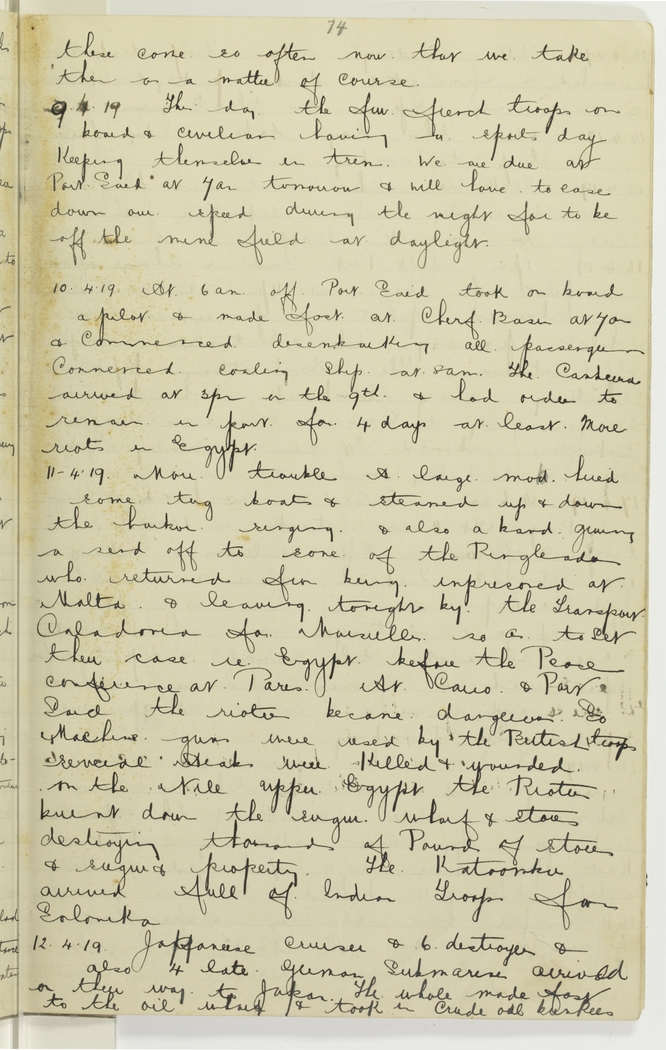 74
these come so often now that we take
them as a matter of course.
9.4.19 This day the few french troops on
board & civilians having a sports day
Keeping themselves in trim. We are due at
Port Said at 7am tomorrow & will have to ease
down our speed during the night for to be
off the mine field at daylight.
10.4.19. At 6am off Port Said took on board
a pilot & made fast at Cherif Basin at 7am
& Commenced disembarking all passengers
Commenced coaling Ship at 8am. The Canberra
arrived at 3pm on the 9th & had orders to
remain in port for 4 days at least. More
riots in Egypt.
11-4.19. More trouble A large mob hired
some tug boats & steamed up & down
the harbor singing. & also a band giving
a send off to some of the Ringleaders
who returned from being imprisoned at
Malta & leaving tonight by the Transport
Caladonia for Marseilles so as to set
their case re Egypt before the Peace
conference at Paris. At Cairo & Port
Said the rioters became dangerous So
Machine guns were used by the British troops
several were Killed & wounded.
on the Nile upper Egypt the Rioters
burnt down the sugar wharf & stores
destroying thousands of Pounds of stores
& sugar & property. The Katoomba
arrived full of Indian Troops from
Salonika
12.4.19. Jappanese cruiser & 6 destroyers &
also 4 late German Submarines arrived
on their way to Japan. The whole made fast
to the oil wharf & took in Crude oil bunkers